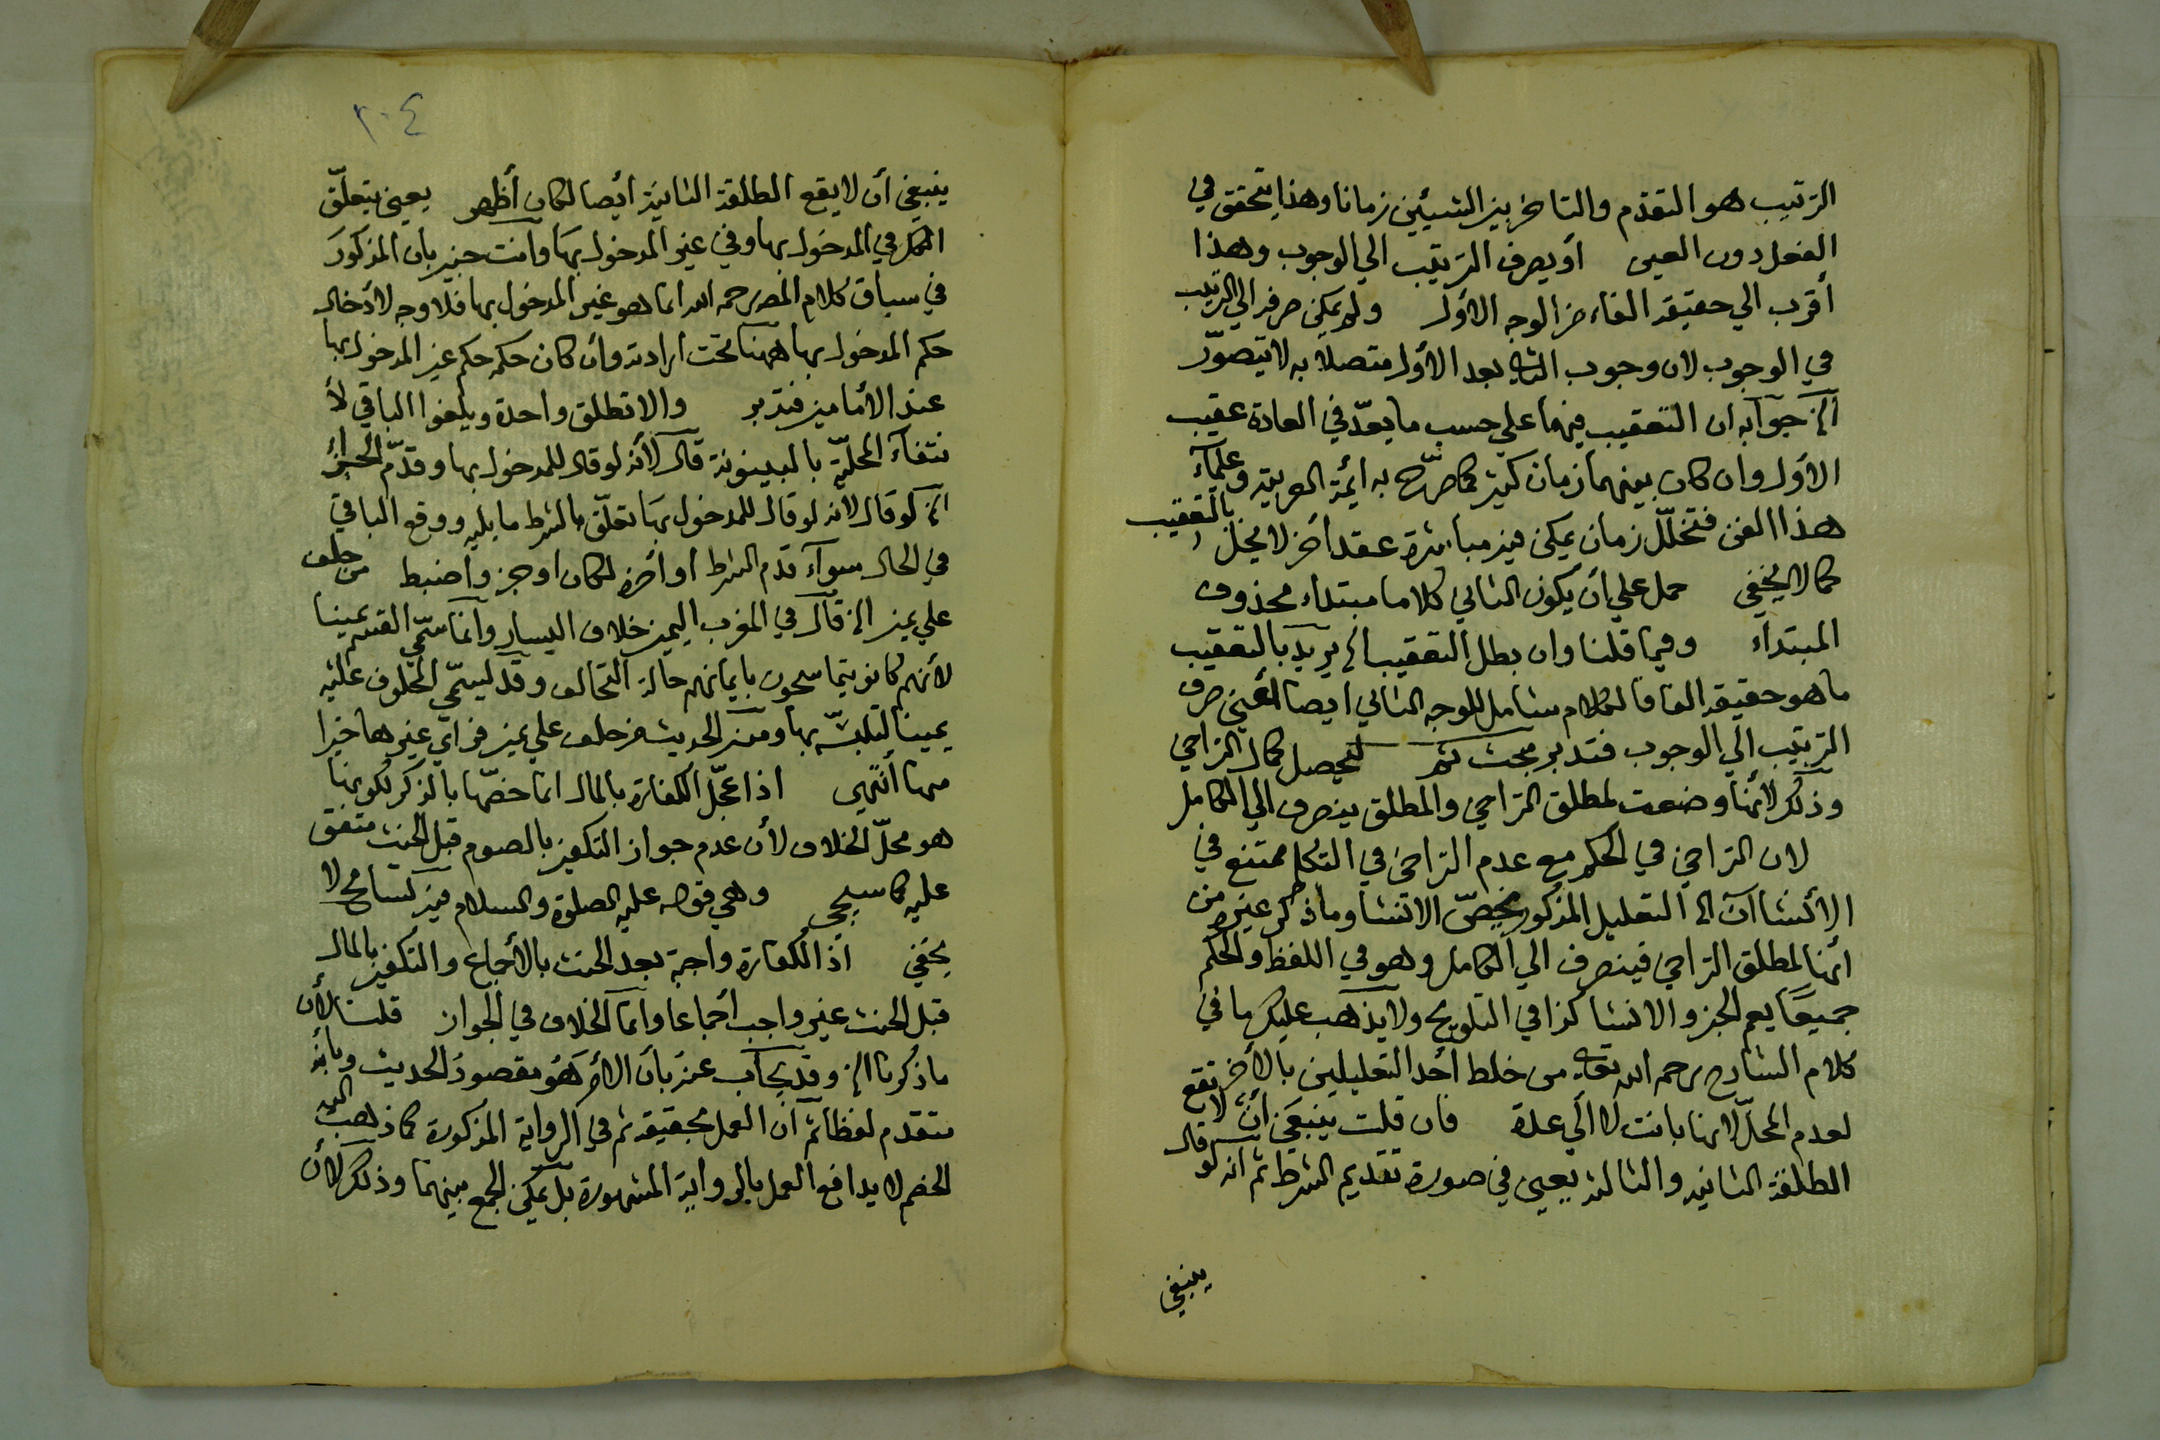 الترتيب هو التقدم والتاخر بين الشيئين زمانا وهذا يتحقق في
الفعل دون العين أو يصرف الترتيب الي الوجوب وهذا
أقرب الي حقيقة الفاء من الوجه الاول ولم يمكن صرفه الي الترتيب
في الوجوب لان وجوب الثاني بعد الاول متصلا به لا يتصوّر
الخ جوابه ان التعقيب فيهما علي حسب ما يعدّ في العادة عقيب
الاول وان كان بينهما زمان كثير كما صرّح به ايمة العربية وعلماء
هذا الفن فتخلّل زمان يمكن فيه مباشرة عقد أخر لا يخل بالتعقيب
كما لا يخفي حمل علي أن يكون الثاني كلاما مبتداء محذوف
المبتداء وفيما قلنا وان بطل التعقيب الخ يريد بالتعقيب
ما هو حقيقة الفا فالكلام شامل للوجه الثاني ايضا أعني صرف
الترتيب الي الوجوب فتدبر مبحث ثم ليحصل كمال التراخي
وذلك لأنها وضعت لمطلق التراخي والمطلق ينصرف الي الكامل
لان التراخي في الحكم مع عدم التراخي في التكلم ممتنع في
الانشاآت الخ التعليل المذكور يخصّ الانشا وما ذكر غيره من
أنها لمطلق التراخي فينصرف الي الكامل وهو في اللفظ والحكم
جميعًا يعم الخبر والانشا كذا في التلويح ولا يذهب عليك ما في
كلام الشارح رحمه الله تعالي من خلط أحد التعليلين بالأخر
لعدم المحلّ لانها بانت لا الي عدة فان قلت ينبغي أن لا تقع
الطلقة الثانية والثالثة يعني في صورة تقديم الشرط ثم انه لو قال
ينبغي
٢٠٤
ينبغي أن لا يقع الطلقة الثانية أيضا لكان أظهر يعني يتعلّق
الكل في المدخول بها وفي غير المدخول بها وأنت خبير بأن المذكور
في سياق كلام المص رحمه الله انما هو غير المدخول بها فلا وجه لادخال
حكم المدخول بها ههنا تحت ارادته وأن كان حكمه حكم غير المدخول بها
عند الأمامين فتدبر والا تطلق واحدة ويلغوا الباقي لأ
نتفآء المحلّيّة بالبينونة قال لأنه لو قال للمدخول بها وقدّم الجزاء
الخ لو قال لانه لو قال للمدخول بها تعلّق بالشرط ما يليه ووقع الباقي
في الحال سوآء قدّم الشرط أو أخره لكان اوجز واضبط من حلف
علي يمين الخ قال في المغرب اليمين خلاف اليسار وانما سمّي القسم يمينا
لأنهم كانو يتماسحون بايمانهم حالة التحالف وقد يسمّي المحلوف عليه
يمينا لتلبسّه بها ومنه الحديث من حلف علي يمين فرآي غيرها خيرا
منها أنتهي اذا عجّل الكفارة بالمال انما خصّها بالذكر لكونها
هو محلّ الخلاف لأن عدم جواز التكفير بالصوم قبل الحنث متفق
عليه كما سيجي وهي قوله عليه الصلوة والسلام فيه تسامح لا
يخفي اذ الكفارة واجبة بعد الحنث بالأجماع والتكفير بالمال
قبل الحنث غير واجب أجماعا وانما الخلاف في الجواز قلت لأن
ما ذكرنا الخ وقد يجاب عنه بأن الأمر هو مقصود الحديث وبانه
متقدم لفظا ثم أن العمل بحقيقة ثم في الرواية المذكورة كما ذهب اليه
الخصم لا يدافع العمل بالرواية المشهورة بل يمكن الجمع بينهما وذلك لأن